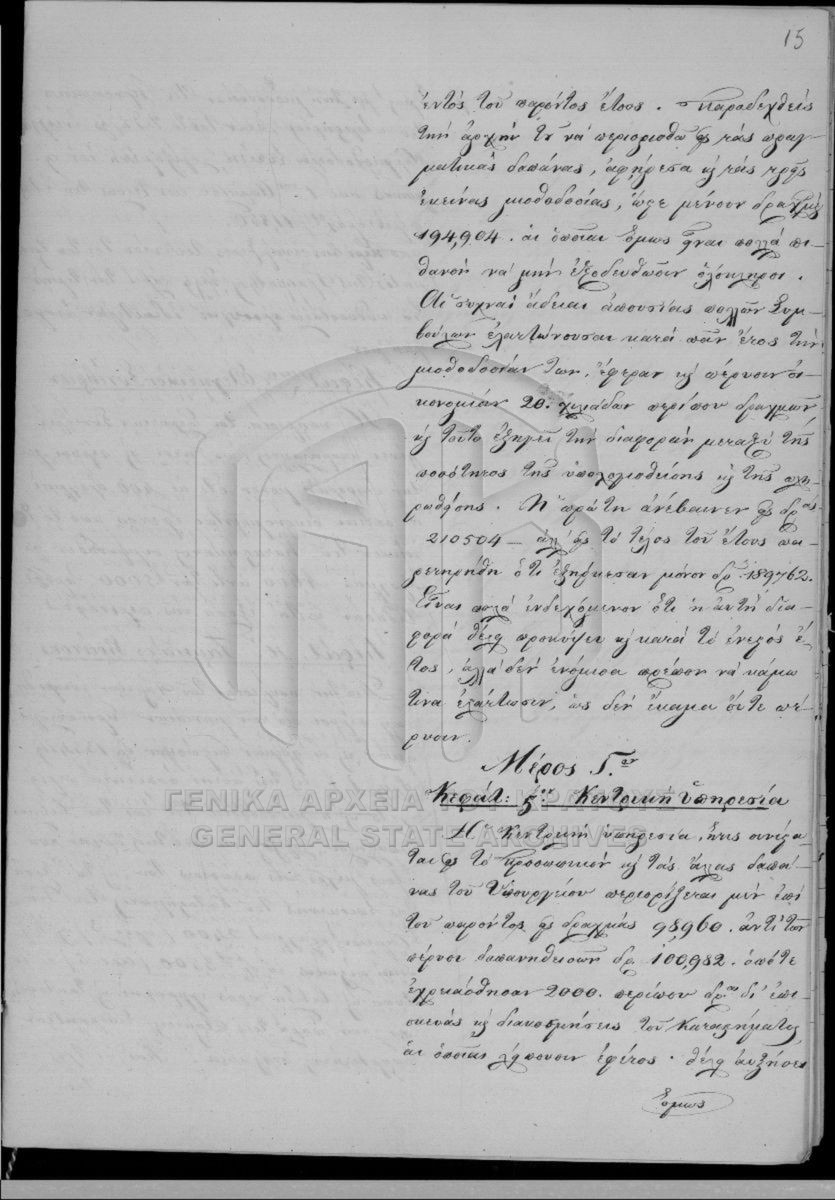 15
ἐντὸς τοῦ παρόντος ἔτους. Παραδεχθεὶς
τὴν ἀρχὴν τοῦ νὰ περιορισθῶ εἰς τὰς πραγ-
ματικὰς δαπάνας, ἀφῄρεσα καὶ τὰς τρεῖς
ἐκείνας μισθοδοσίας, ὥστε μένουν δραχμὲς
194,904. αἱ ὁποῖαι ὅμως εἶναι πολλὰ πι-
θανὸν νὰ μὴν ἐξοδευθῶσιν ὁλόκληροι.
Αἱ συχναὶ ἄδειαι ἀπουσίας πολλῶν Συμ-
βούλων ἐλαττώνουσαι κατὰ πᾶν ἔτος τὴν
μισθοδοσίαν των, ἔφεραν καὶ πέρυσιν οἰ-
κονομίαν 20. χιλιάδων περίπου δραχμῶν
καὶ τοῦτο ἐξηγεῖ τὴν διαφορὰν μεταξὺ τῆς
ποσότητος τῆς ὑπολογισθείσης καὶ τῆς πλη-
ρωθείσης. Ἡ πρώτη ἀνέβαινεν εἰς δρ.ας
210504 — ἀλλ' εἰς τὸ τέλος τοῦ ἔτους πα-
ρετηρήθη ὅτι ἐξήρκεσαν μόνον δρ. 189762.
Εἶναι πολλὰ ἐνδεχόμενον ὅτι ἡ αὐτὴ δια-
φορὰ θέλει προκύψει καὶ κατὰ τὸ ἐνεστὸς ἔ-
τος, ἀλλὰ δὲν ἐνόμισα πρέπον νὰ κάμω
τινα ἐλάττωσιν, ὡς δὲν ἔκαμα οὔτε πέ-
ρυσιν.
Μέρος Γ.ον
Κεφάλ: 5.ον Κεντρικὴ ὑπηρεσία
ΓΕΝΙΚΑ ΑΡΧΕΙΑ ΤΟΥ ΚΡΑΤΟΥΣ
GENERAL STATE ARCHIVES
Ἡ Κεντρικὴ ὑπηρεσία, ἥτις συνίστα-
ται εἰς τὸ προσωπικὸν καὶ τὰς ἄλλας δαπά-
νας τοῦ Ὑπουργείου περιορίζεται μὲν ἐπὶ
τοῦ παρόντος εἰς δραχμὰς 98960. ἀντὶ τῶν
πέρυσι δαπανηθεισῶν δρ. 100,982. ὁπότε
ἐχρειάσθησαν 2000. περίπου δρ.αι δι' ἐπι-
σκευὰς καὶ διακοσμήσεις τοῦ Καταστήματος
αἱ ὁποῖαι λείπουσιν ἐφέτος. θέλει αὐξήσει
ὅμως